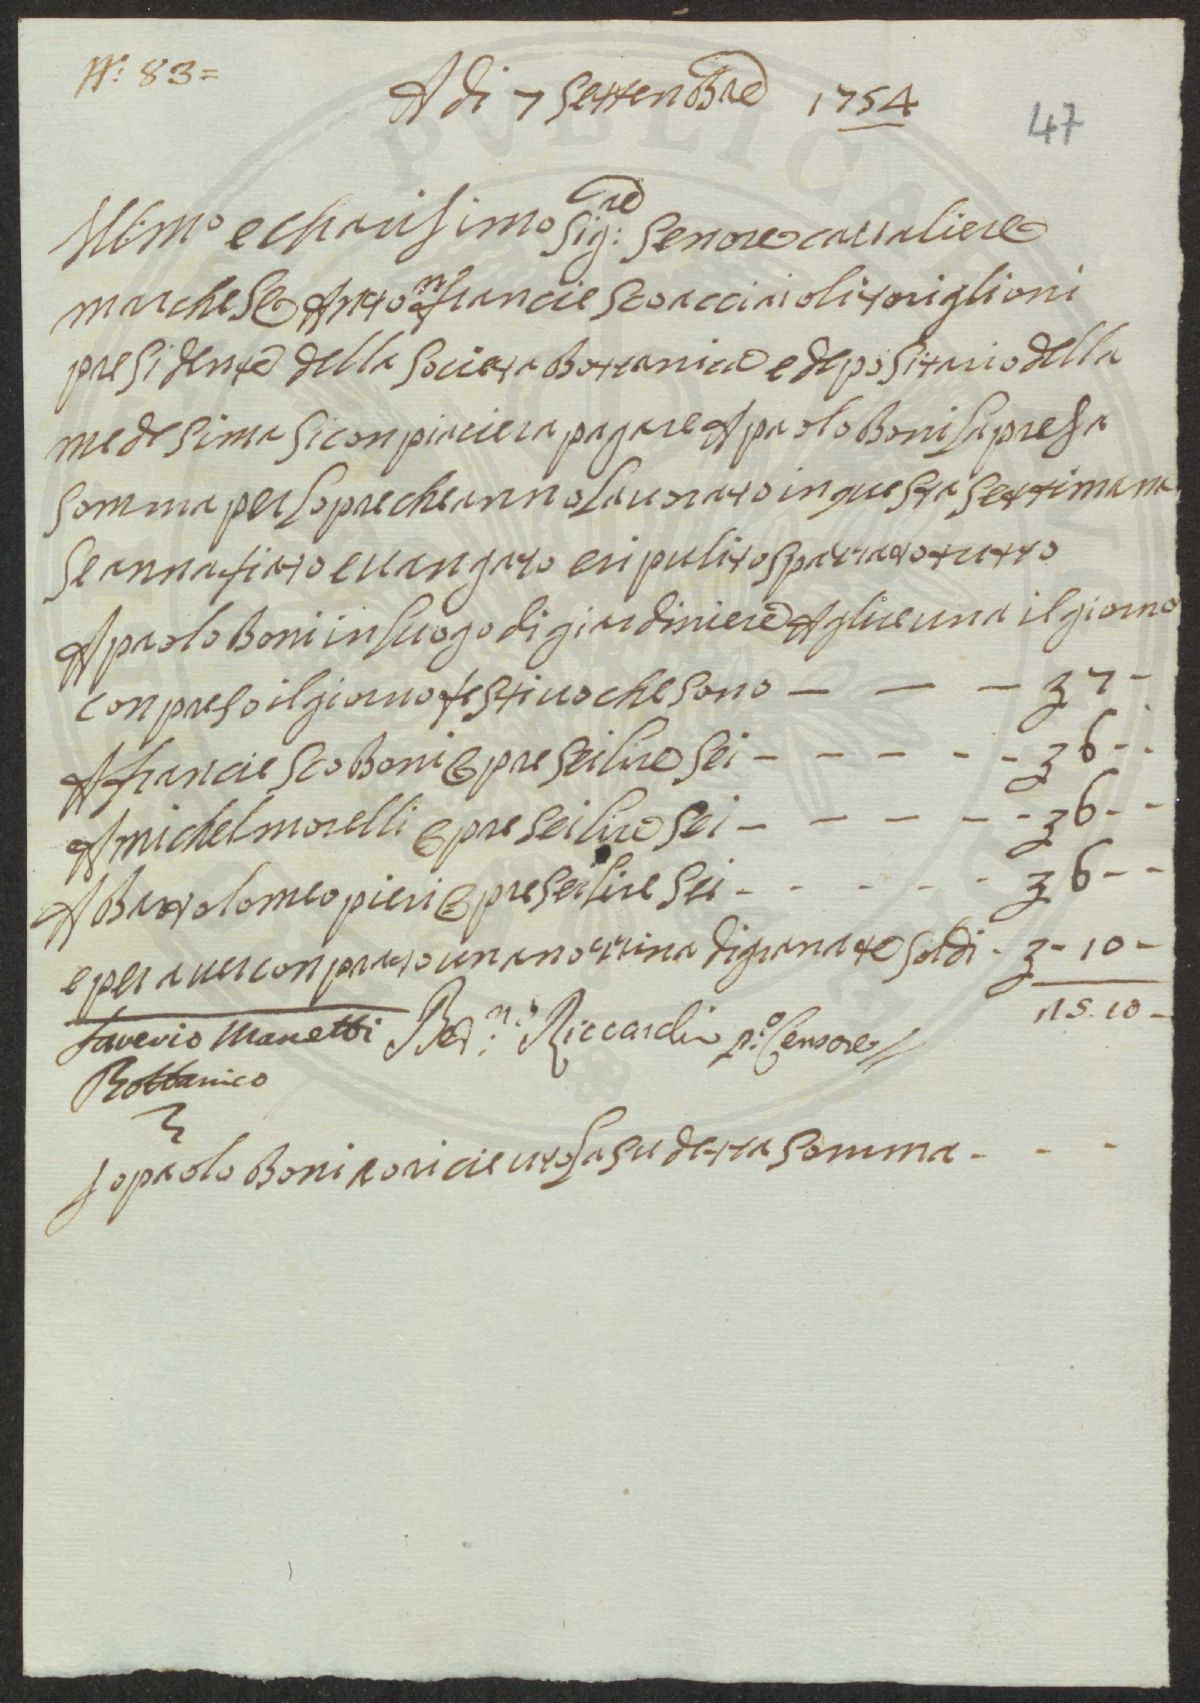 N: 83=
A di 7 Settenbre 1754
47
Illmo e charisimo Sig:re Senore cavaliere
marchese Antonfranciesco acciaioli toriglioni
presidente della Societa Botanica e depositario della
medesima si conpiaciera pagare A paolo Boni la presa
somma per lopre che anno lavorato in questa settimana
se annafiato e vangato e ripulito spazato tutto
A paolo Boni in luogo di giardiniere A lire una il giorno
conpreso il giorno festivo che sono — — — 7 -
A franciesco Boni opre sei lire sei - - - - - - 6 - -
A michel morelli opre sei lire sei - - - - - - 6 - -
A Bartolomeo pieri opre sei lire sei - - - - - - 6 - -
e per aver conprato una di granate soldi - - 10 -
15.10 -
Saverio Manetti Ber.no Riccardi p:o Censore
Bottanico
Io paolo Boni o ricieuto la sudetta somma - - -
PVBLICAE